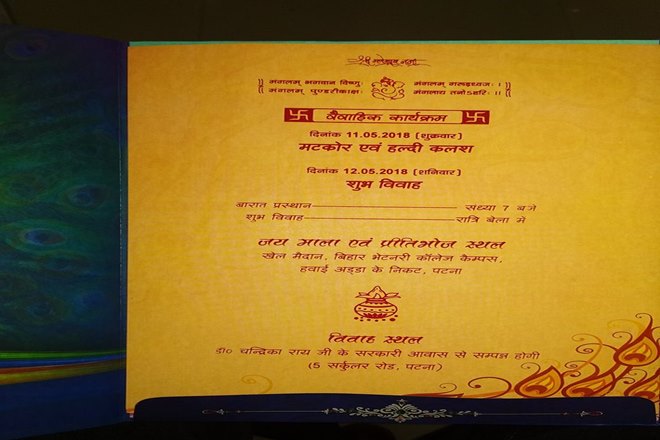 श्री गणेशाय नमः
मंगलम् भगवान विष्णुः मंगलम् गरूड़ध्वजः ।
मंगलम् पुण्डरीकाक्षः मंगलाय तनोऽहरिः ।।
वैवाहिक कार्यक्रम
दिनांक 11.05.2018 (शुक्रवार)
मटकोर एवं हल्दी कलश
दिनांक 12.05.2018 (शनिवार)
शुभ विवाह
बारात प्रस्थान संध्या 7 बजे
शुभ विवाह रात्रि बेला में
जय माला एवं प्रीतिभोज स्थल
खेल मैदान, बिहार भेटनरी कॉलेज कैम्पस,
हवाई अड्डा के निकट, पटना
विवाह स्थल
डा० चन्द्रिका राय जी के सरकारी आवास से सम्पन्न होगी
(5 सर्कुलर रोड, पटना)